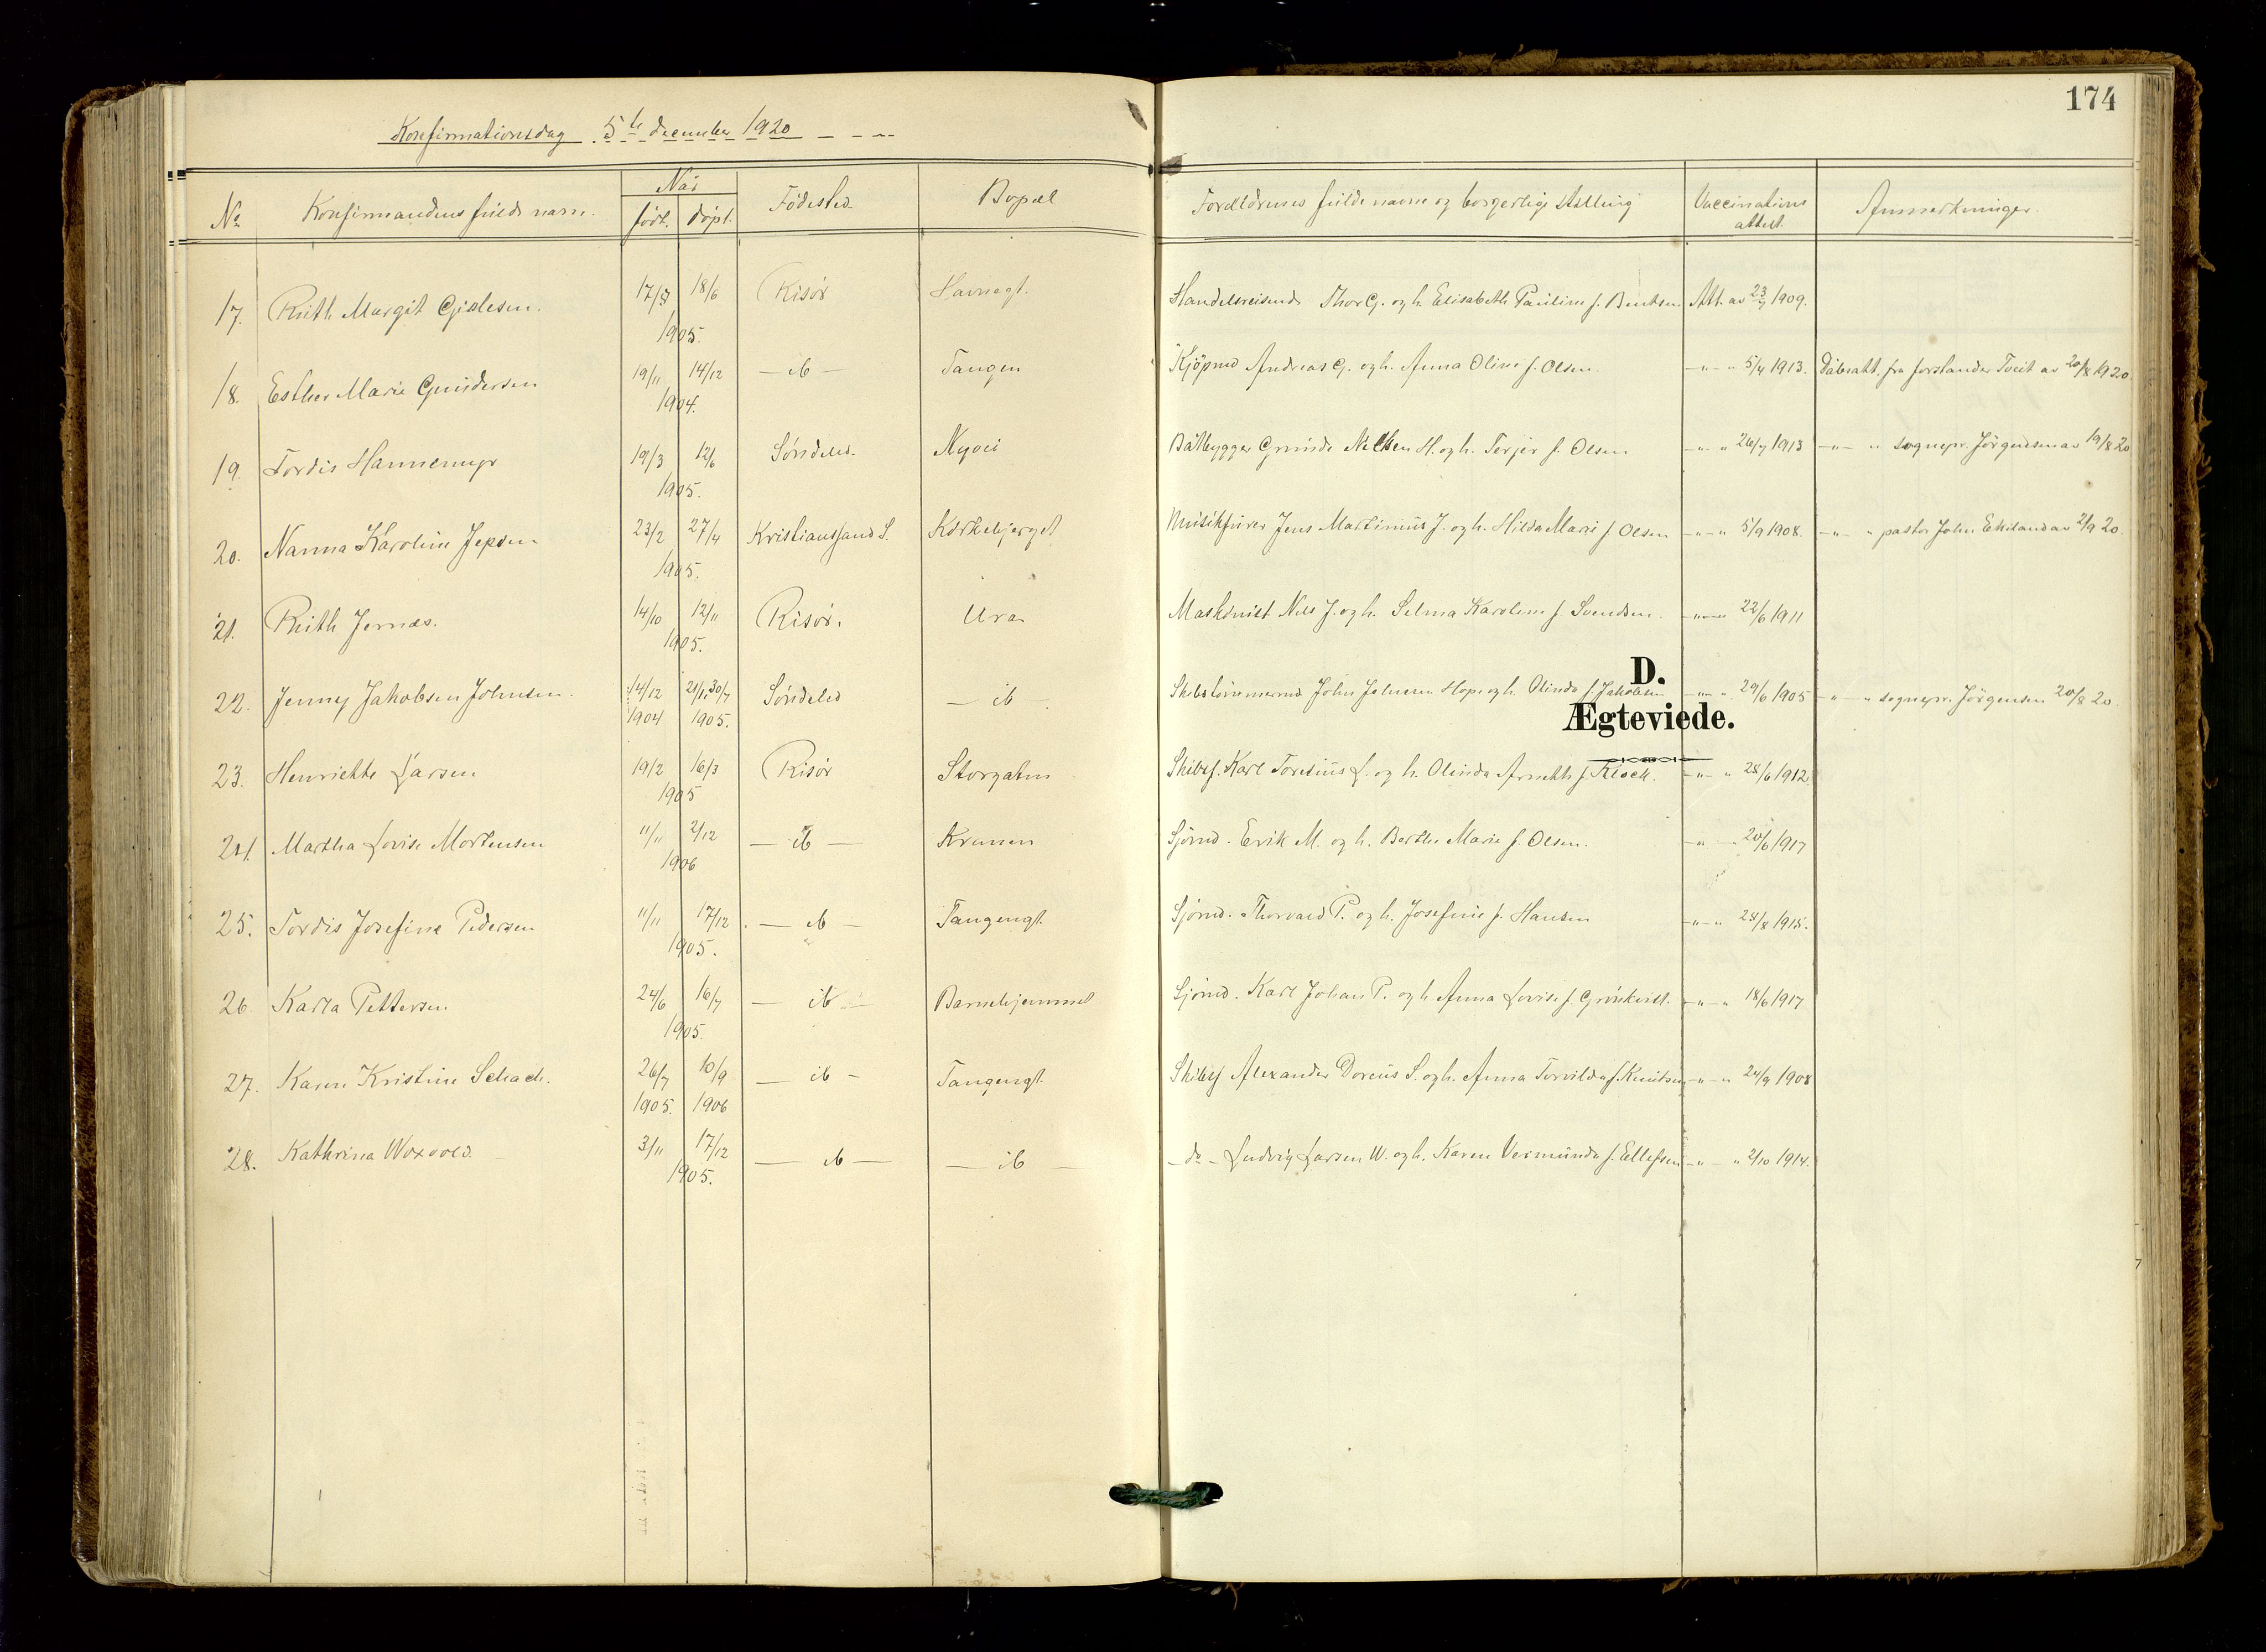 174
Konfirmationsdag 5te december 1920
No Konfirmandens fulde navn. Når født. døpt. Fødested Bopæl Forældrenes fulde navne og borgerlige stilling Vaccinations attest. Anmerkninger.
17. Ruth Margit Gjulesen. 17/3 18/6 1905. Risør Havnegt. Handelsreisende Thor G. og h. Elisabeth Pauline f. Bentsen Att. av 23/7 1909.
18. Esther Marie Gundersen 19/11 14/12 1904. — ib — Tangen Kjøpmd Andreas G. og h. Anna Oline f. Olsen. —"— " 5/4 1913. Dåbsatt. fra forstander Tveit av 20/8 1920.
19. Tordis Hannemyr 19/3 12/6 1905. Søndeled Nyvei Båtbygger Gunde Nilsen H. og h. Terjer f. Olsen —"— " 26/7 1913 —"— " sognepr. Jørgensen av 19/8 20
20. Nanna Karoline Jepsen 23/2 27/4 1905. Kristianssand S. Kirkebjerget Musikfører Jens Martinius J. og h. Hilda Marie f. Olsen —"— " 5/9 1908. —"— " pastor John Ekeland av 2/9 20.
21. Ruth Jernæs. 14/10 12/11 1905. Risør. Ura Maskinist Nils J. og h. Selma Karoline f. Svendsen. —"— " 22/6 1911
D.
22. Jenny Jakobsen Johnsen. 14/12 1904 21/1, 30/7 1905. Søndeled — ib — Skibstømmermd John Johnsen Hope og h. Olinda f. Jakobsen —"— " 29/6 1905 —"— " sognepr. Jørgensen 20/8 20.
Ægteviede.
23. Henriette Larsen 19/2 16/3 1905 Risør Storgaten Skibsf. Karl Toresius L. og h. Olinda Arnette f. Kloch. —"— " 28/6 1912.
24. Martha Lovise Mortensen 11/11 2/12 1906 — ib — Kranen Sjømd. Erik M. og h. Berthe Marie f. Olsen. —"— 20/6 1917
25. Tordis Josefine Pedersen 11/11 17/12 1905. — ib — Tangengt. Sjømd. Thorvald P. og h. Josefine f. Hansen —"— " 28/8 1915.
26. Karla Pettersen 24/6 16/7 1905. — ib — Barnehjemmet Sjømd. Karl Johan P. og h. Anna Lovise f. Grönkvist. —"— " 18/6 1917
27. Karen Kristine Schach. 26/7 1905. 10/9 1906 — ib — Tangengt. Skibsf Alexander Doreus S. og h. Anna Torvilda f. Knutsen —"— " 24/9 1908
28. Kathrina Woxvold. 3/11 17/12 1905. — ib — — ib — — do — Ludvig Larsen W. og h. Karen Vermunda f. Ellefsen —"— " 2/10 1914.